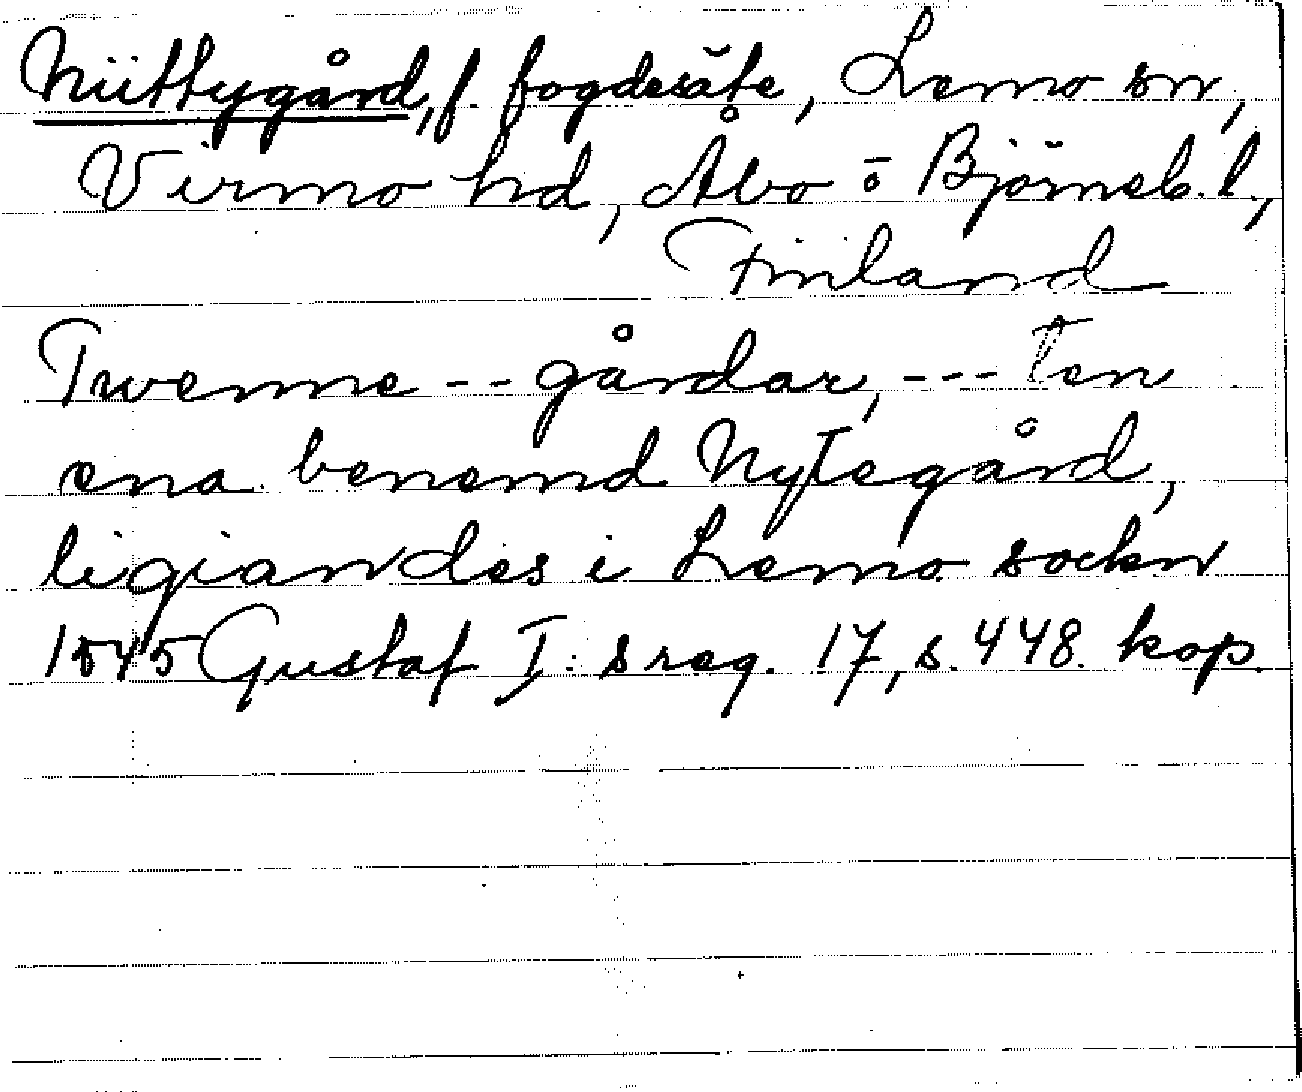 Niittygård, f. fogdesäte, Lemo sn,
Virmo hd, Åbo o Björneb. l.,
Finland
Twenne -- gårdar, --- Ten
ena benemd Nytegård,
ligiandes i Lemo sockn
1545 Gustaf I:s reg. 17, s. 448. kop.